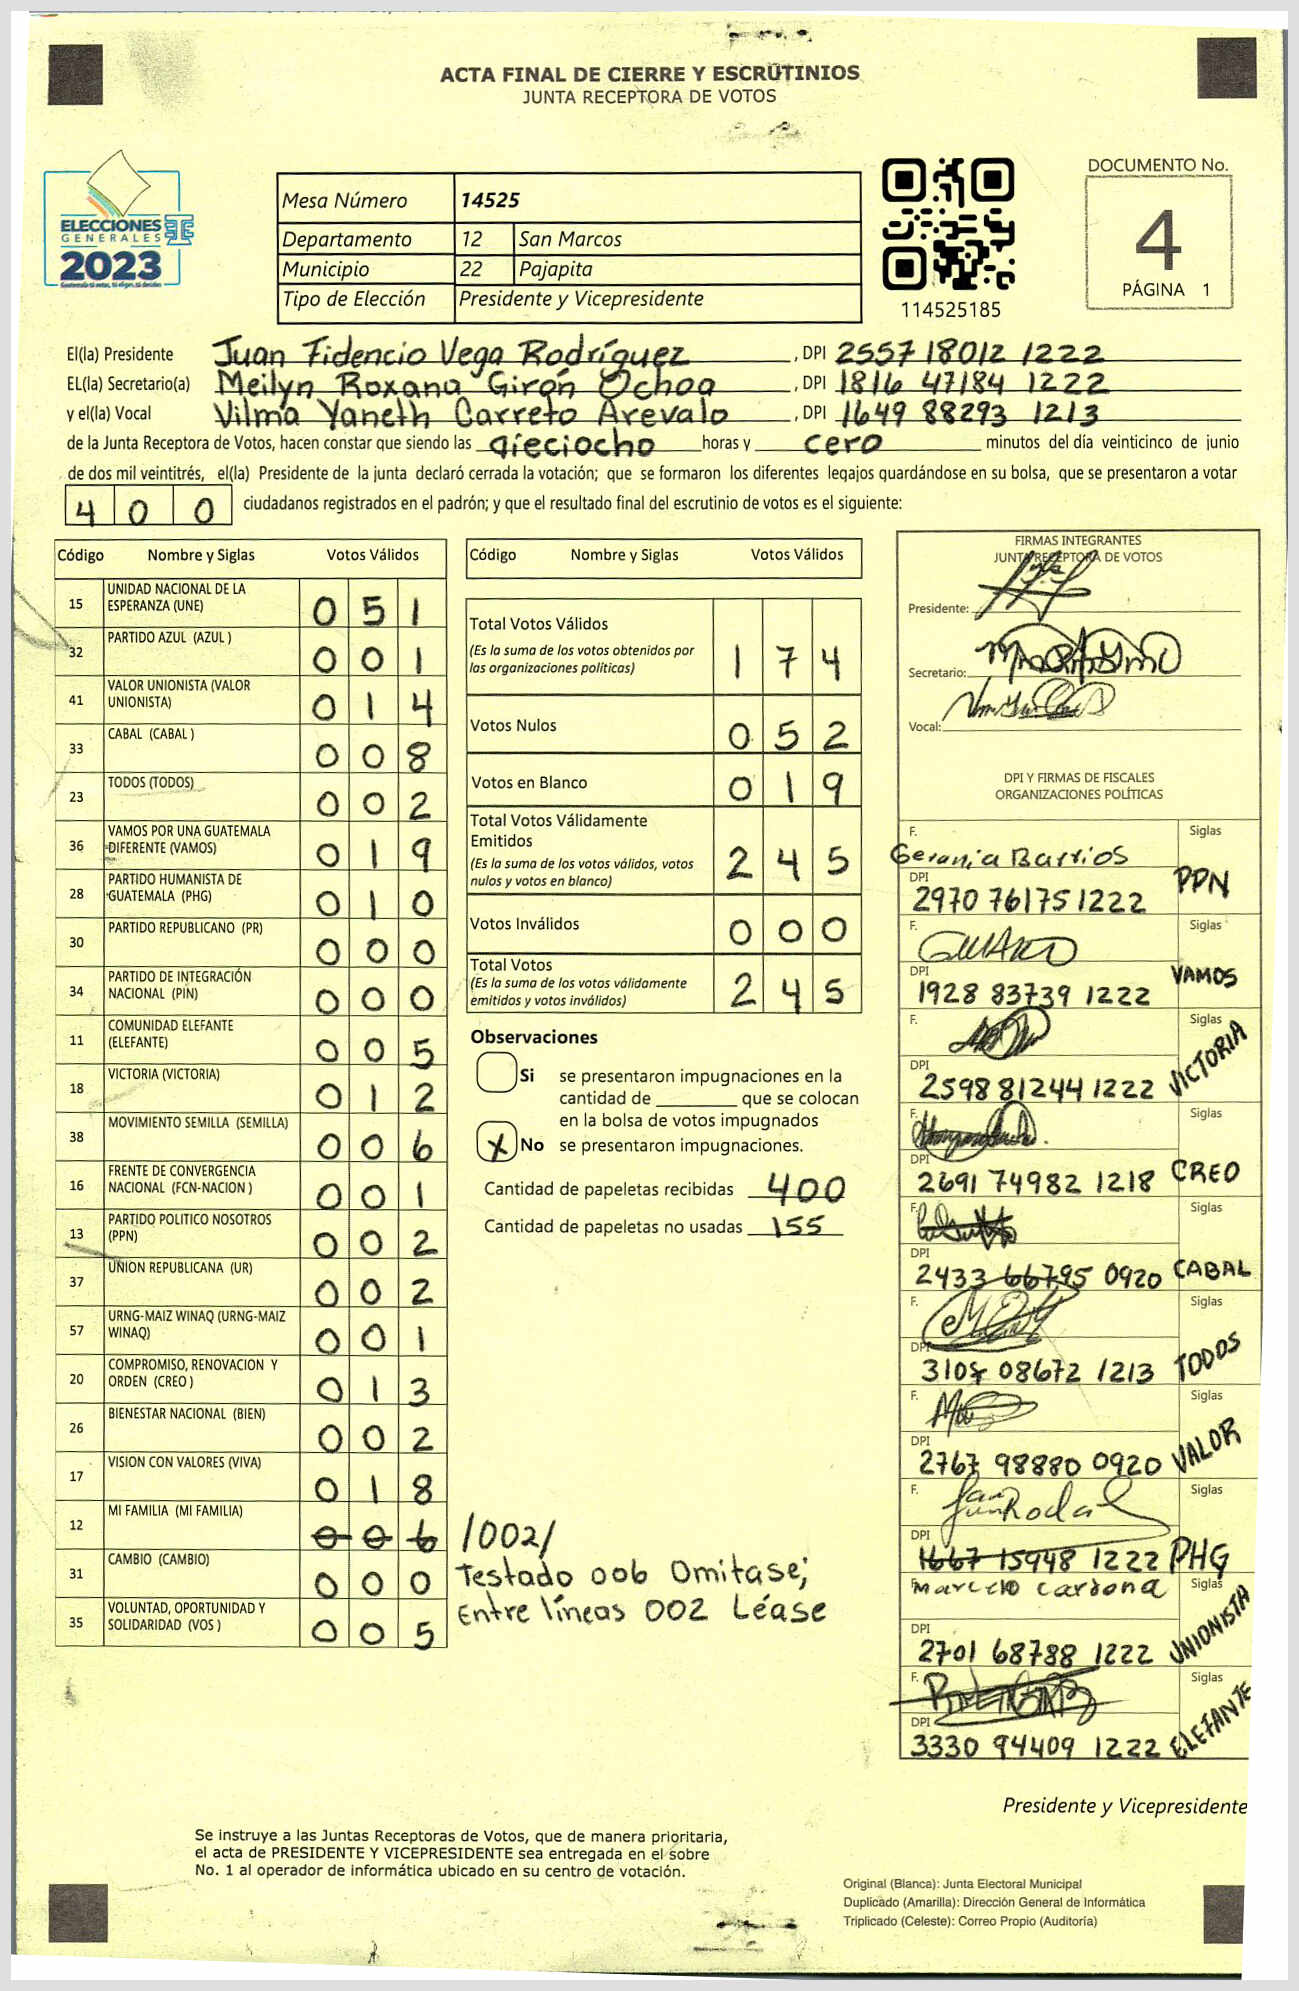 ACTA FINAL DE CIERRE Y ESCRUTINIOS
JUNTA RECEPTORA DE VOTOS
ELECCIONES
GENERALES
2023
Mesa Número 14525
Departamento 12 San Marcos
Municipio 22 Pajapita
Tipo de Elección Presidente y Vicepresidente
114525185
DOCUMENTO No.
4
PÁGINA 1
El(la) Presidente Juan Fidencio Vega Rodríguez , DPI 2557 18012 1222
EL(la) Secretario(a) Meilyn Roxana Girón Ochoa , DPI 1816 47184 1222
y el(la) Vocal Vilma Yaneth Carreto Arevalo , DPI 1649 88293 1213
de la Junta Receptora de Votos, hacen constar que siendo las dieciocho horas y cero minutos del día veinticinco de junio
de dos mil veintitrés, el(la) Presidente de la junta declaró cerrada la votación; que se formaron los diferentes legajos quardándose en su bolsa, que se presentaron a votar
400 ciudadanos registrados en el padrón; y que el resultado final del escrutinio de votos es el siguiente:
Código Nombre y Siglas Votos Válidos
15 UNIDAD NACIONAL DE LA
ESPERANZA (UNE) 0 5 1
32 PARTIDO AZUL (AZUL ) 0 0 1
41 VALOR UNIONISTA (VALOR
UNIONISTA) 0 1 4
33 CABAL (CABAL ) 0 0 8
23 TODOS (TODOS) 0 0 2
36 VAMOS POR UNA GUATEMALA
DIFERENTE (VAMOS) 0 1 9
28 PARTIDO HUMANISTA DE
GUATEMALA (PHG) 0 1 0
30 PARTIDO REPUBLICANO (PR) 0 0 0
34 PARTIDO DE INTEGRACIÓN
NACIONAL (PIN) 0 0 0
11 COMUNIDAD ELEFANTE
(ELEFANTE) 0 0 5
18 VICTORIA (VICTORIA) 0 1 2
38 MOVIMIENTO SEMILLA (SEMILLA) 0 0 6
16 FRENTE DE CONVERGENCIA
NACIONAL (FCN-NACION ) 0 0 1
13 PARTIDO POLITICO NOSOTROS
(PPN) 0 0 2
37 UNION REPUBLICANA (UR) 0 0 2
57 URNG-MAIZ WINAQ (URNG-MAIZ
WINAQ) 0 0 1
20 COMPROMISO, RENOVACION Y
ORDEN (CREO ) 0 1 3
26 BIENESTAR NACIONAL (BIEN) 0 0 2
17 VISION CON VALORES (VIVA) 0 1 8
12 MI FAMILIA (MI FAMILIA) 0 0 6 /002/
31 CAMBIO (CAMBIO) 0 0 0
35 VOLUNTAD, OPORTUNIDAD Y
SOLIDARIDAD (VOS ) 0 0 5
Testado 006 Omitase;
Entre líneas 002 Léase
Código Nombre y Siglas Votos Válidos
Total Votos Válidos
(Es la suma de los votos obtenidos por
las organizaciones políticas) 1 7 4
Votos Nulos 0 5 2
Votos en Blanco 0 1 9
Total Votos Válidamente
Emitidos
(Es la suma de los votos válidos, votos
nulos y votos en blanco) 2 4 5
Votos Inválidos 0 0 0
Total Votos
(Es la suma de los votos válidamente
emitidos y votos inválidos) 2 4 5
Observaciones
Si se presentaron impugnaciones en la
cantidad de ________ que se colocan
en la bolsa de votos impugnados
X No se presentaron impugnaciones.
Cantidad de papeletas recibidas 400
Cantidad de papeletas no usadas 155
FIRMAS INTEGRANTES
JUNTA RECEPTORA DE VOTOS
Presidente:
Secretario:
Vocal:
DPI Y FIRMAS DE FISCALES
ORGANIZACIONES POLÍTICAS
F. Gerania Barrios Siglas
DPI 2970 76175 1222 PPN
F. Siglas
DPI 1928 83739 1222 VAMOS
F. Siglas
DPI 2598 81244 1222 VICTORIA
F. Siglas
DPI 2691 74982 1218 CREO
F. Siglas
DPI 2433 66795 0920 CABAL
F. Siglas
DPI 08672 1213 TODOS
F. Siglas
DPI 2767 98880 0920 VALOR
F. Siglas
DPI 1667 15948 1222 PHG
F. Marcelo Cardona Siglas
DPI 2701 68788 1222 UNIONISTA
F. Siglas
DPI 3330 94409 1222 ELEFANTE
Presidente y Vicepresidente
Se instruye a las Juntas Receptoras de Votos, que de manera prioritaria,
el acta de PRESIDENTE Y VICEPRESIDENTE sea entregada en el sobre
No. 1 al operador de informática ubicado en su centro de votación.
Original (Blanca): Junta Electoral Municipal
Duplicado (Amarilla): Dirección General de Informática
Triplicado (Celeste): Correo Propio (Auditoría)